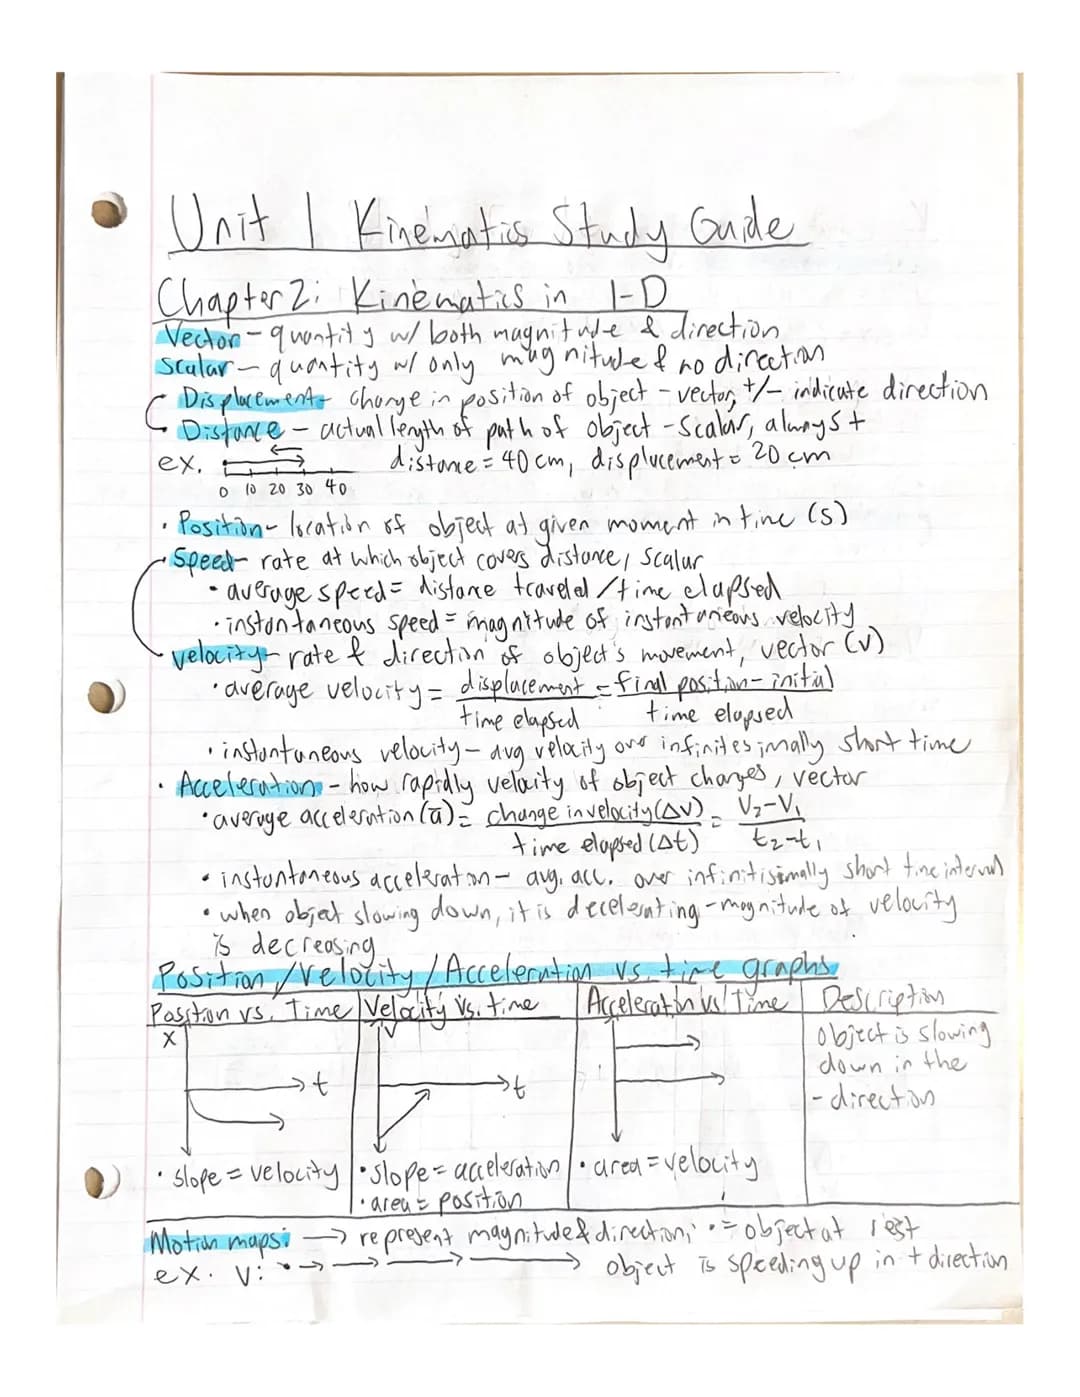 Unit 1 Kinematics Study Guide
Chapter 2: Kinematics in 1-D
Vector - quantity w/ both magnitude & direction
Scalar - quantity w/ only magnitude & no direction
Displacement - change in position of object - vector, +/- indicate direction
Distance - actual length of path of object - Scalar, always +
ex. distance = 40 cm, displacement = 20 cm
0 10 20 30 40
• Position - location of object at given moment in time (s)
Speed - rate at which object covers distance, scalar
• average speed = distance traveled / time elapsed
• instantaneous speed = magnitude of instantaneous velocity
velocity - rate & direction of object's movement, vector (v)
• average velocity = displacement = final position - initial
time elapsed time elapsed
• instantaneous velocity - avg velocity over infinitesimally short time
• Acceleration - how rapidly velocity of object changes, vector
• average acceleration (a̅) = change in velocity (Δv) = V₂-V₁
time elapsed (Δt) t₂-t₁
• instantaneous acceleration - avg. acc. over infinitisimally short time interval
• when object slowing down, it is decelerating - magnitude of velocity
is decreasing
Position / Velocity / Acceleration vs. time graphs
Position vs. Time Velocity vs. time Acceleration vs. Time Description
x v Object is slowing
down in the
t t - direction
• slope = velocity • slope = acceleration • area = velocity
• area = position
Motion maps: → represent magnitude & direction, • = object at rest
ex. V: • → → → → object is speeding up in + direction